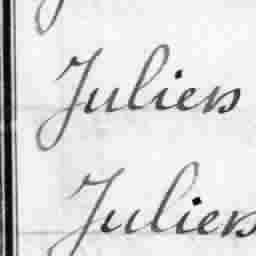 Juliers
Juliers